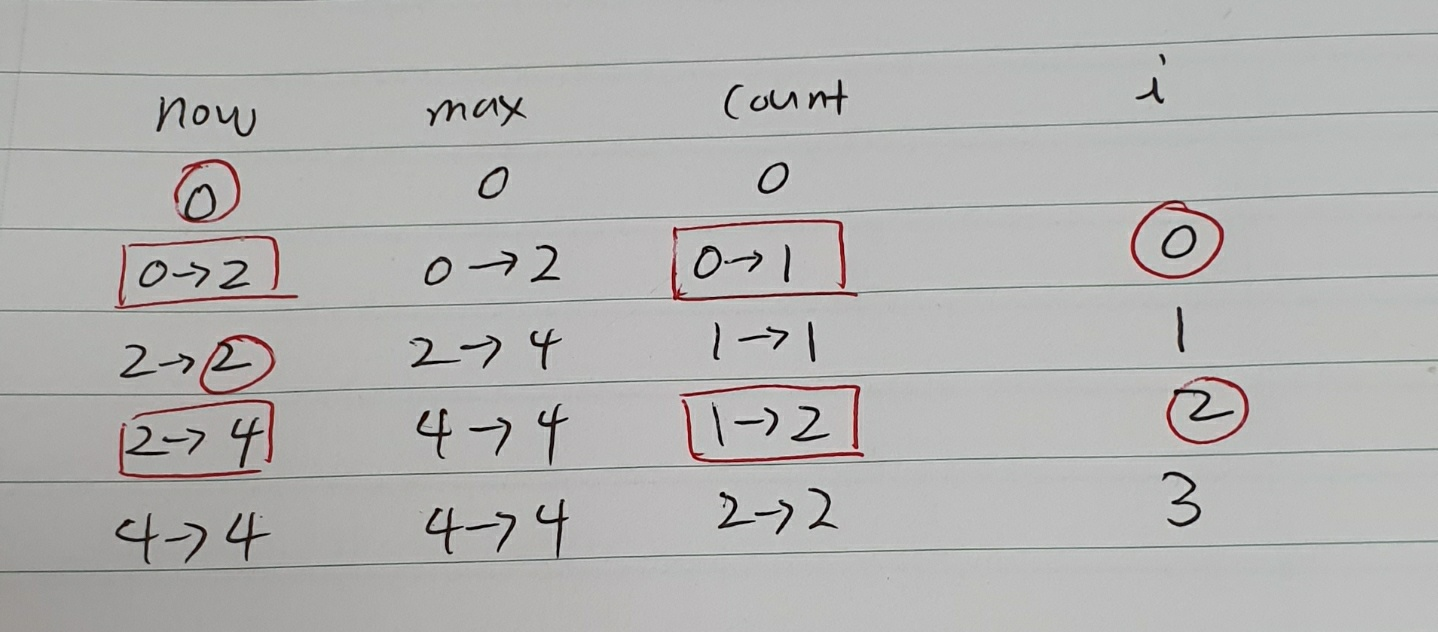 now max count i
0 0 0
0→2 0→2 0→1 0
2→2 2→4 1→1 1
2→4 4→4 1→2 2
4→4 4→4 2→2 3